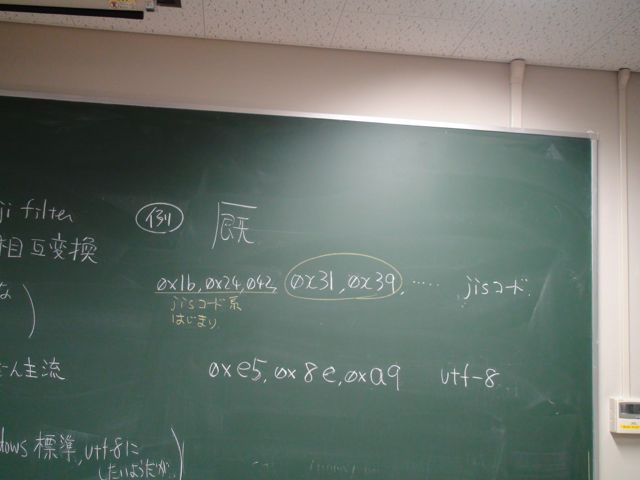 ji filter
相互変換
な
主流
dows 標準, utf8に
したいようだが、
例 厩
0x1b, 0x24, 042, 0x31, 0x39, ‥‥‥ jisコード.
jisコード系
はじまり
0xe5, 0x8e, 0xa9 utf-8